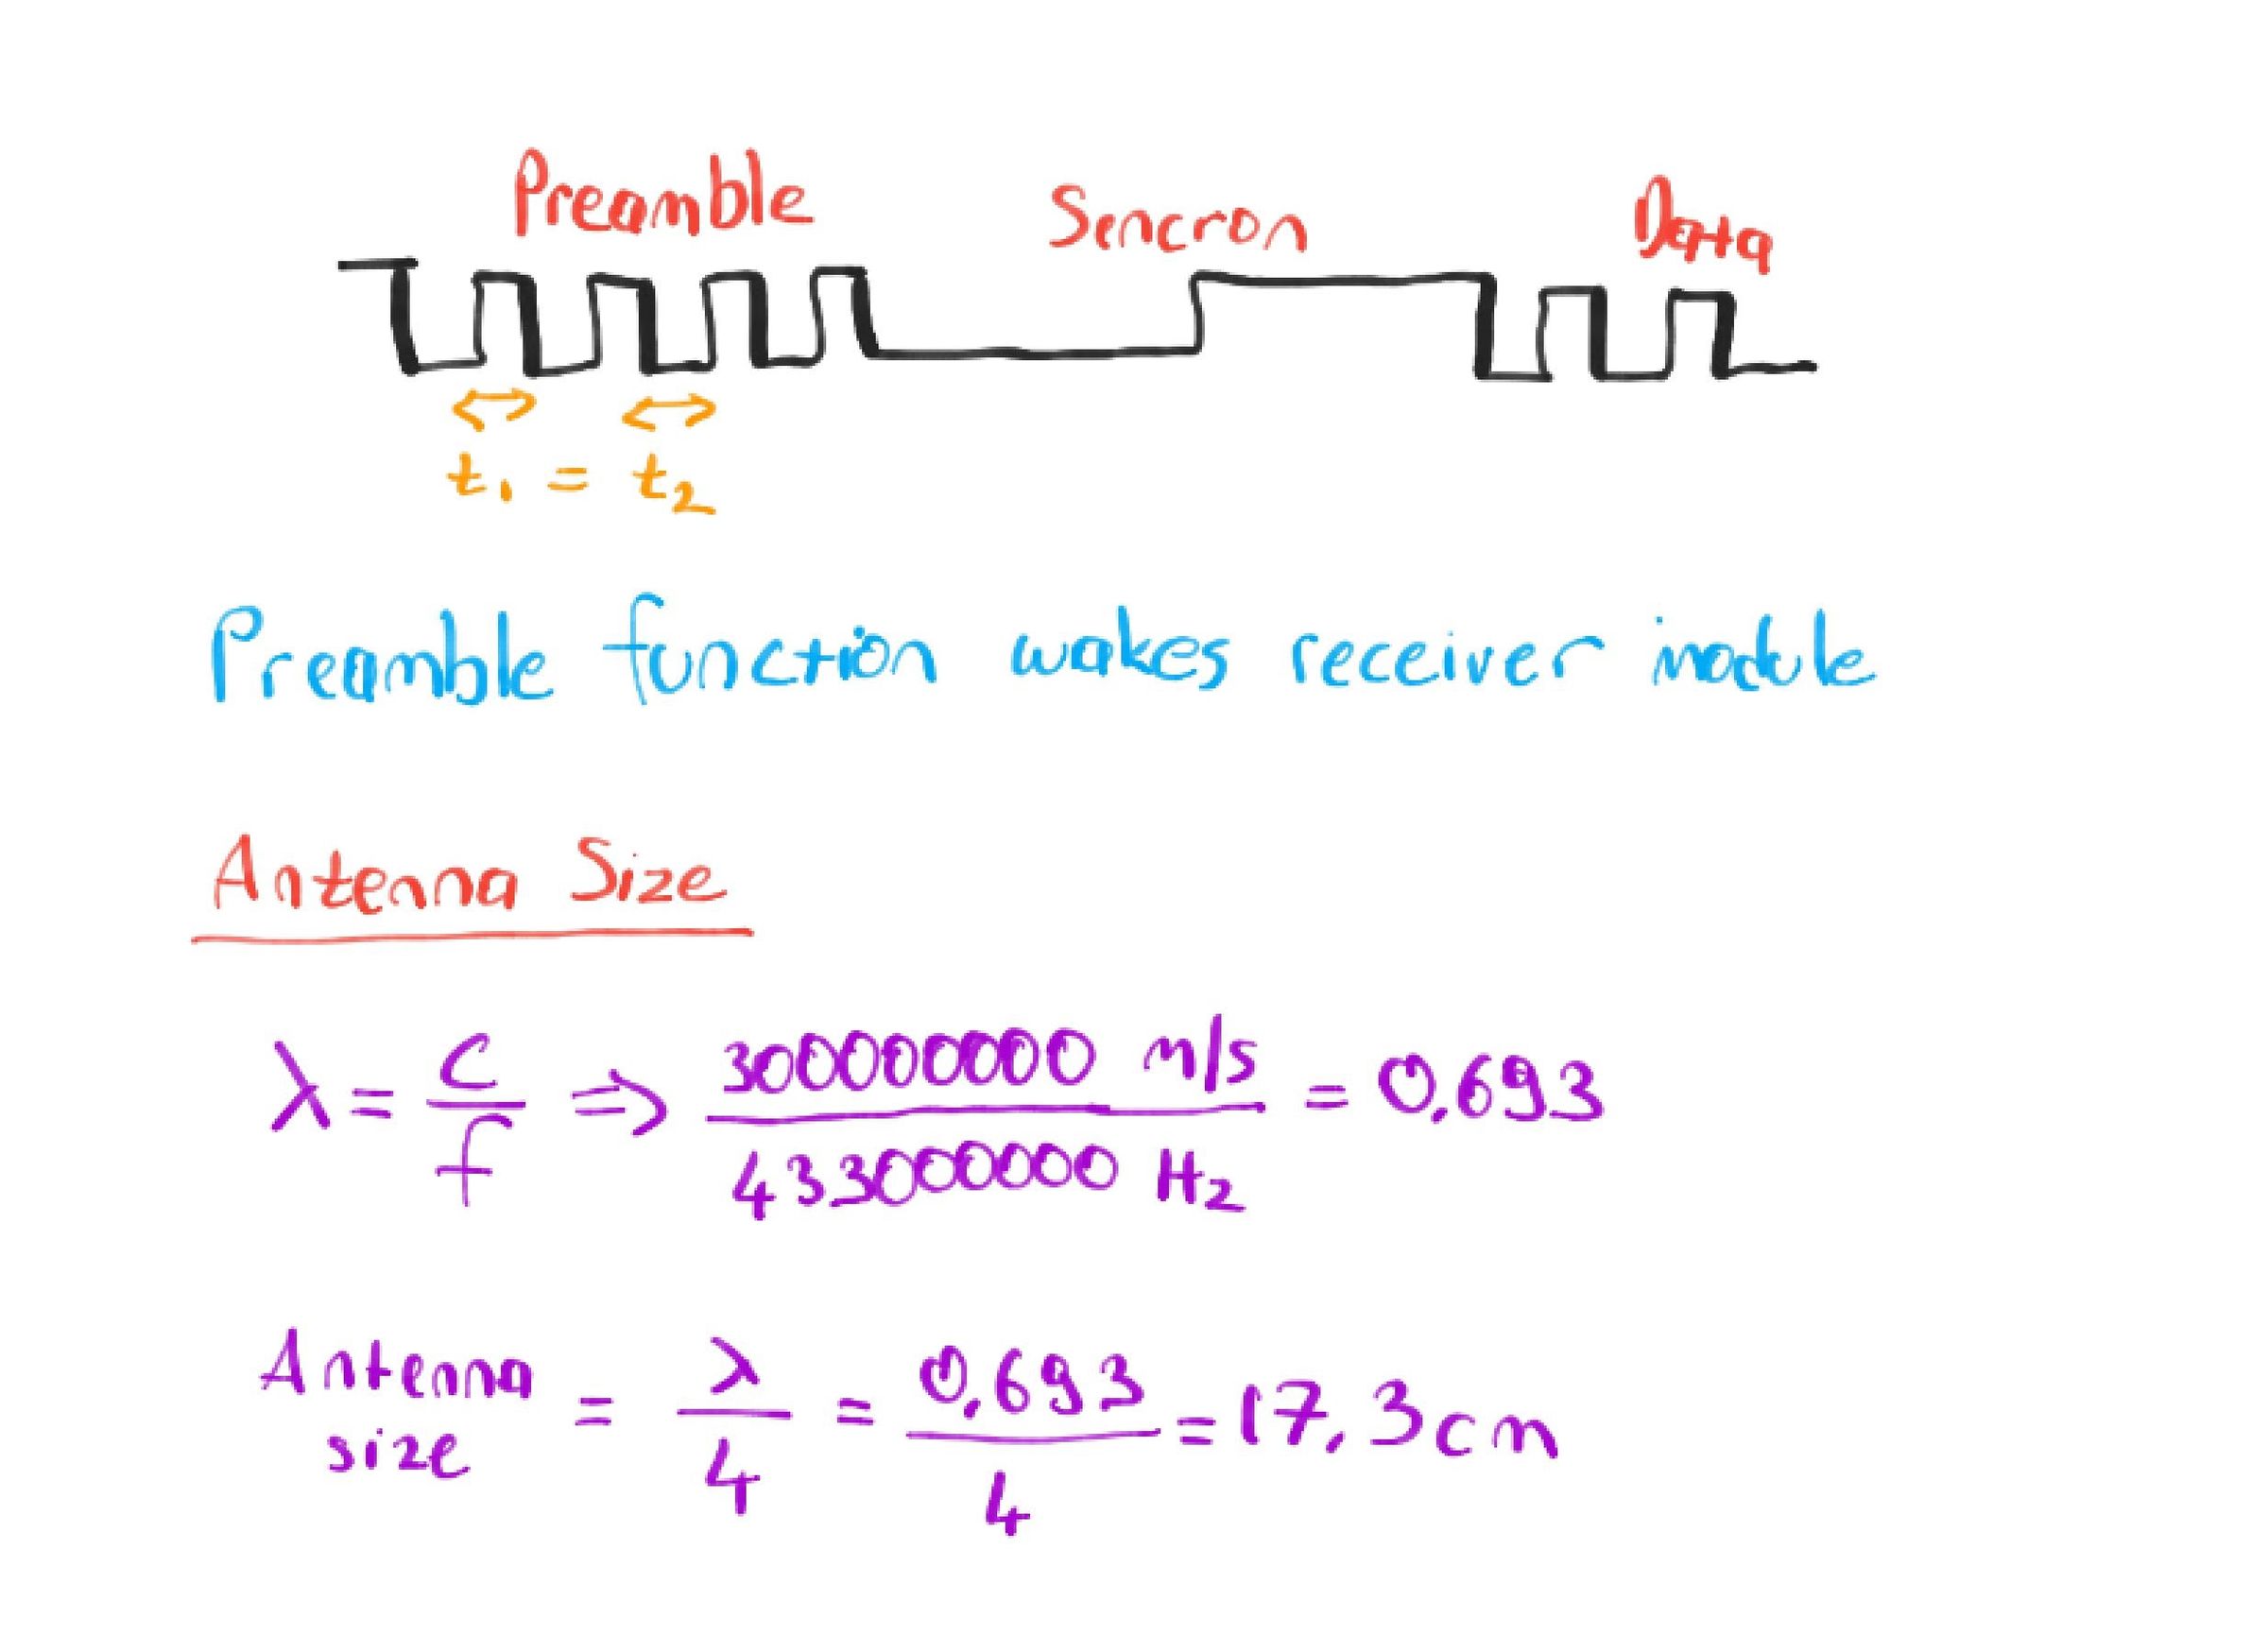 Preamble Sencron Data
t₁ = t₂
Preamble function wakes receiver module
Antenna Size
λ = c/f ⇒ 300000000 m/s / 433000000 Hz = 0,693
Antenna size = λ/4 = 0,693/4 = 17,3cm